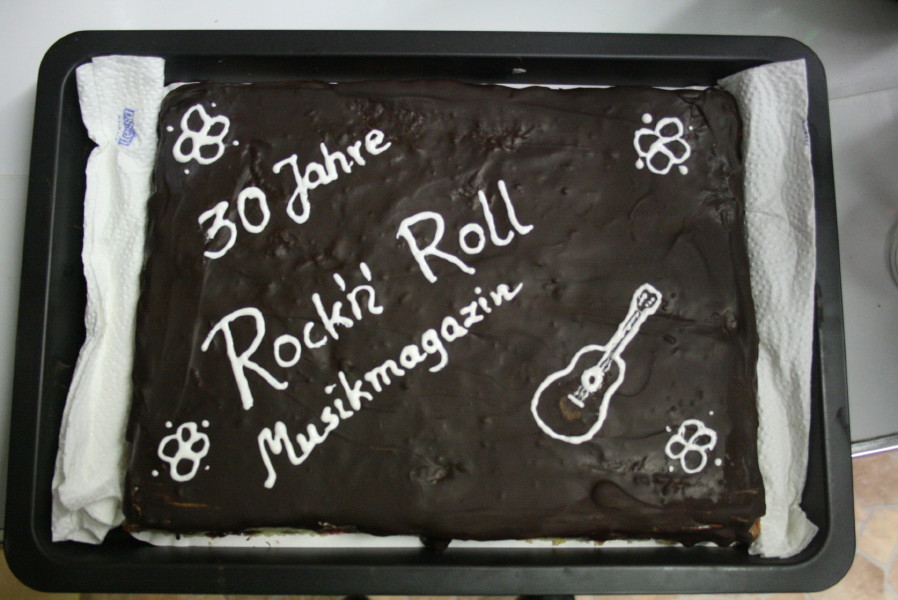 30 Jahre
Rock'n' Roll
Musikmagazin